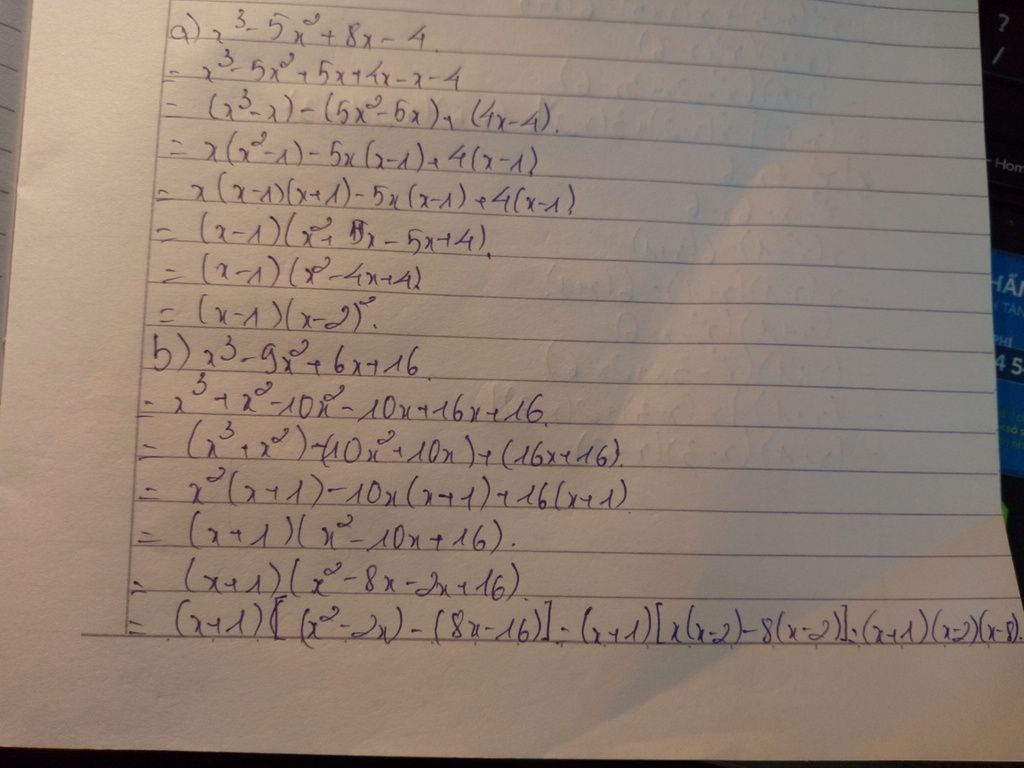 a) x³ - 5x² + 8x - 4.
= x³ - 5x² + 5x + 4x - x - 4
= (x³ - x) - (5x² - 5x) + (4x - 4).
= x(x² - 1) - 5x(x - 1) + 4(x - 1)
= x(x - 1)(x + 1) - 5x(x - 1) + 4(x - 1)
= (x - 1)(x² + x - 5x + 4).
= (x - 1)(x² - 4x + 4)
= (x - 1)(x - 2)².
b) x³ - 9x² + 6x + 16.
= x³ + x² - 10x² - 10x + 16x + 16.
= (x³ + x²) - (10x² + 10x) + (16x + 16).
= x²(x + 1) - 10x(x + 1) + 16(x + 1)
= (x + 1)(x² - 10x + 16).
= (x + 1)(x² - 8x - 2x + 16)
= (x + 1)[(x² - 2x) - (8x - 16)] = (x + 1)[x(x - 2) - 8(x - 2)] = (x + 1)(x - 2)(x - 8).
?
/
Hom
4 5